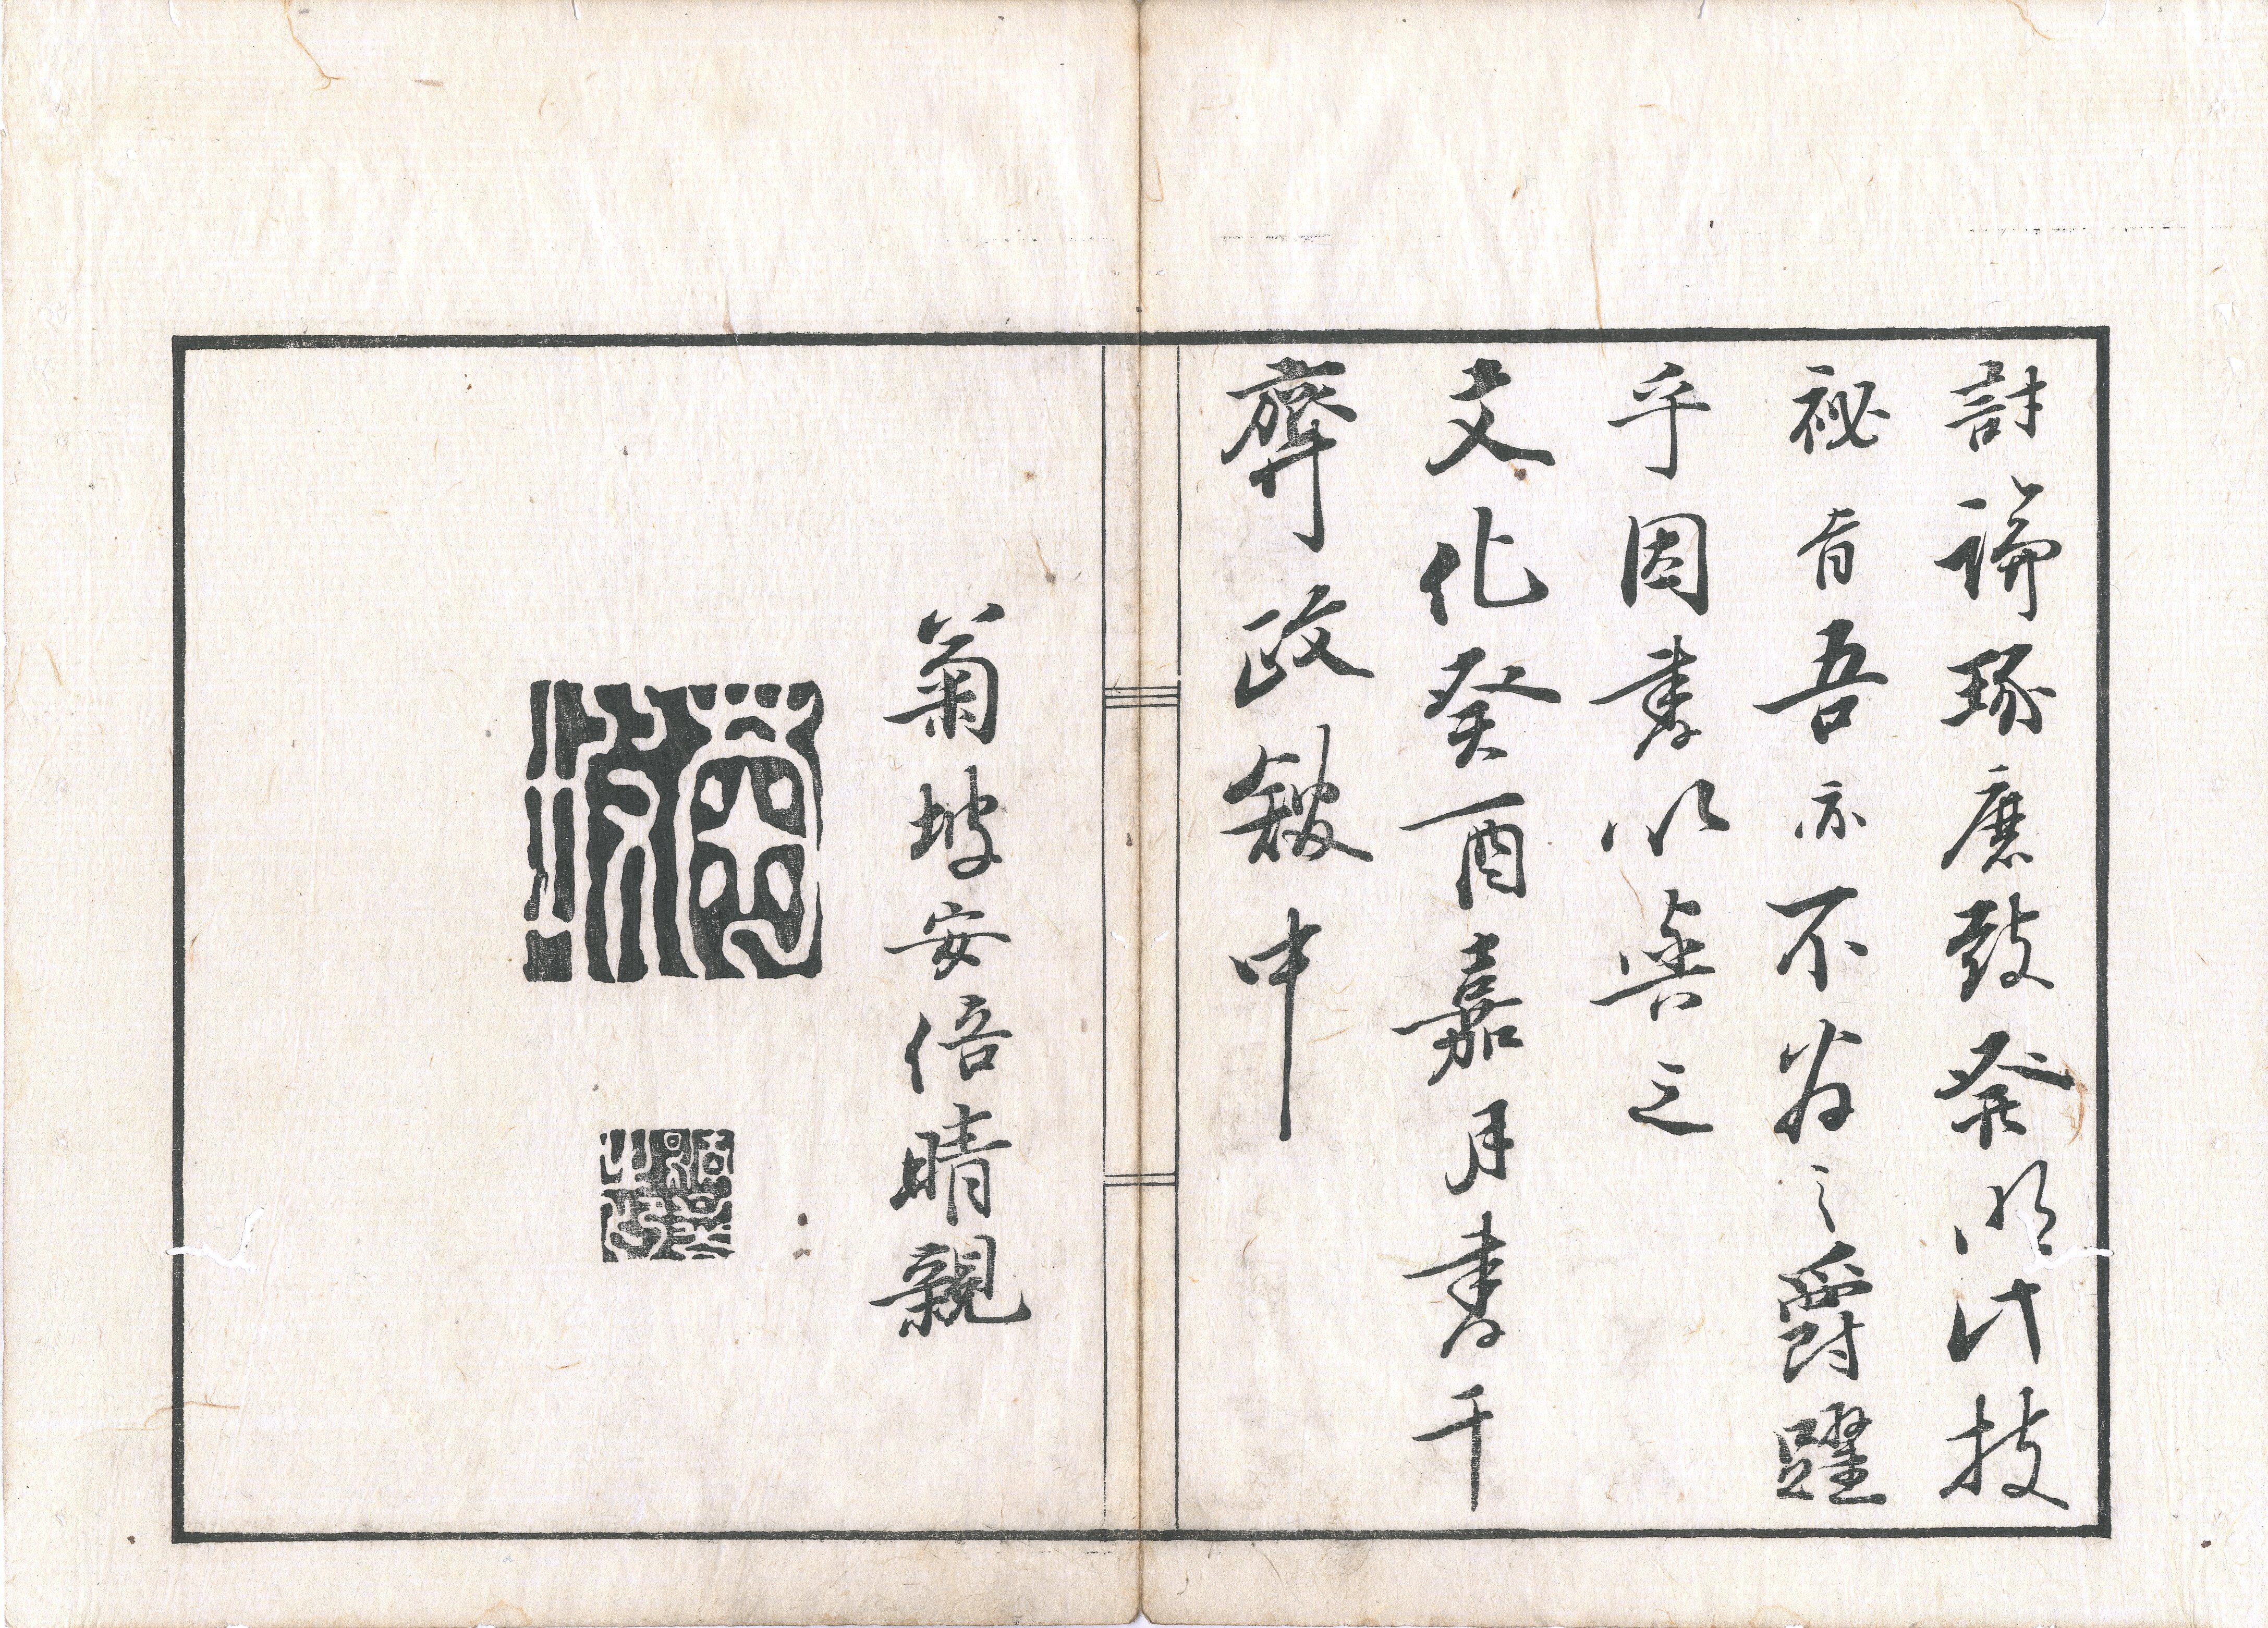 討論琢磨致発明此技
秘旨吾亦不為之爵躍
乎因書以與之
文化癸酉嘉月書于
齊政館中
菊坡安倍晴親